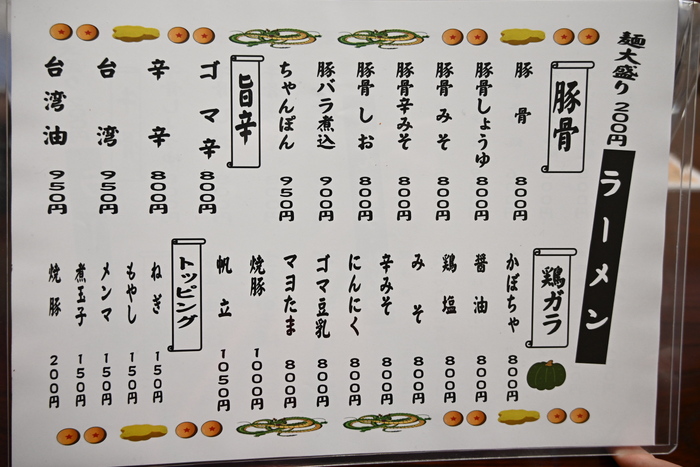 麺大盛り 200円
ラーメン
豚骨
豚骨 800円
豚骨しょうゆ 800円
豚骨みそ 800円
豚骨辛みそ 800円
豚骨しお 800円
豚バラ煮込 900円
ちゃんぽん 950円
旨辛
ゴマ辛 800円
辛辛 800円
台湾 950円
台湾油 950円
鶏ガラ
かぼちゃ 800円
醤油 800円
鶏塩 800円
みそ 800円
辛みそ 800円
にんにく 800円
ゴマ豆乳 800円
マヨたま 800円
焼豚 1000円
帆立 1050円
トッピング
ねぎ 150円
もやし 150円
メンマ 150円
煮玉子 150円
焼豚 200円